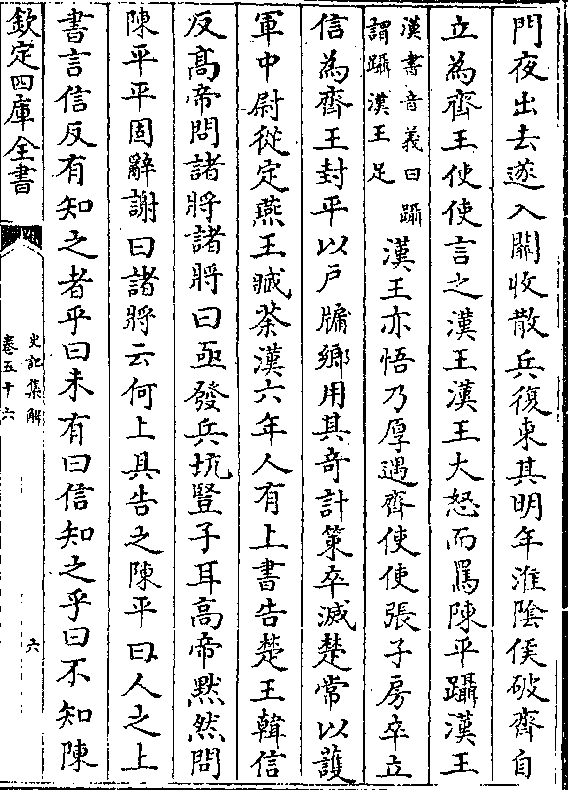 門夜出去遂入關收散兵復東其明年淮陰侯破齊自
立為齊王使使言之漢王漢王大怒而罵陳平躡漢王
漢書音義曰躡
謂躡漢王足
漢王亦悟乃厚遇齊使使張子房卒立
信為齊王封平以戸牖鄉用其奇計策卒滅楚常以護
軍中尉從定燕王臧荼漢六年人有上書告楚王韓信
反高帝問諸將諸將曰亟發兵坑豎子耳高帝黙然問
陳平平固辭謝曰諸將云何上具告之陳平曰人之上
書言信反有知之者乎曰未有曰信知之乎曰不知陳
欽定四庫全書
史記集解
卷五十六
六